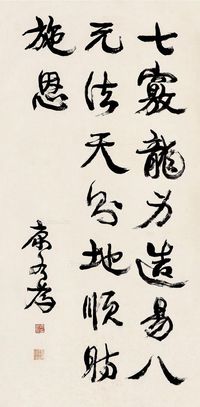 七竅龍身造易八
元法天則地順時
施恩
康有為